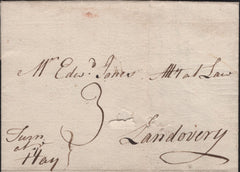 Mr Edwd. Jones Att at Law
3
Landovery
Turn
at
Hay